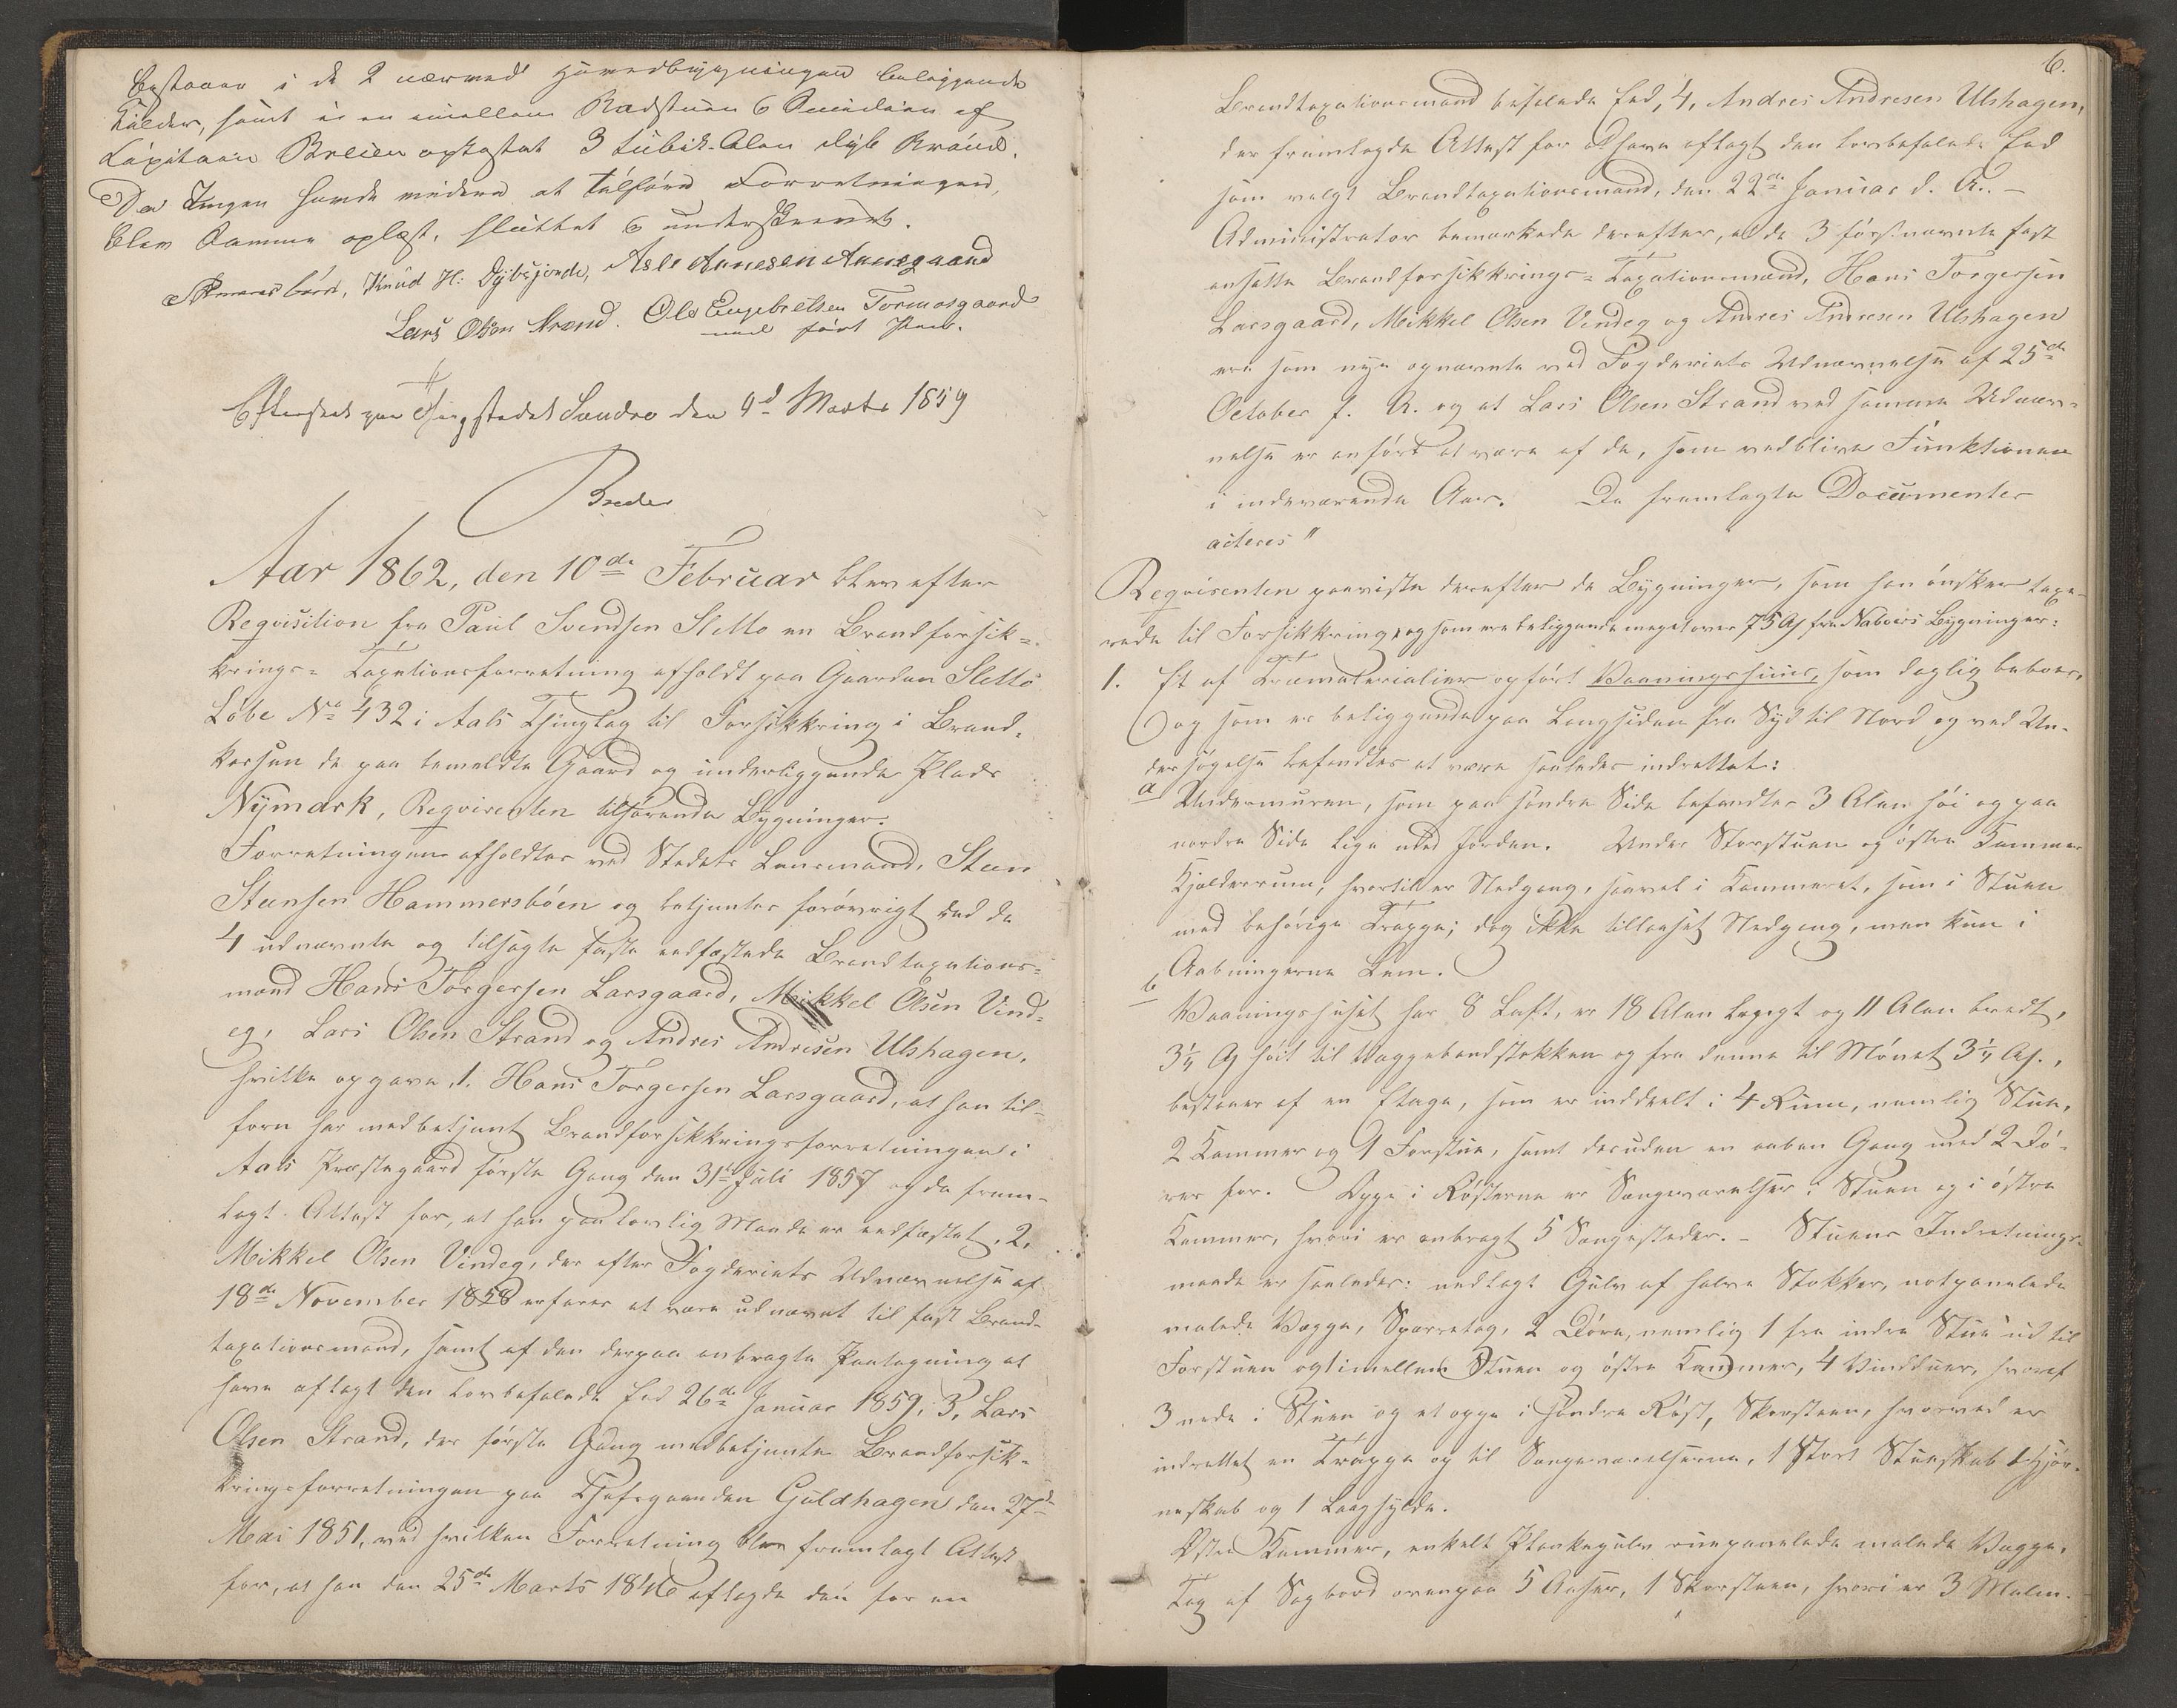 bestaaer i de 2 nærved Hovedbygningen beliggende
Kilder, samt i en imellem Badstuen &
Capitain Breien opkastet 3 Cubik-Alen dyb Brönd.
Da Ingen havde videre at tilföre Forretningen,
blev Samme oplæst, sluttet & underskrevet.
Knud H: Dybsjorde, Asle Arnesen Arnegaard
Lars Olsen Strand. Ole Engebretsen Tormosgaard
med ført Pen.
Efterseet paa Thingstedet Sundre den 4d Marts 1859
Breder
Aar 1862, den 10de Februar blev efter
Reqvisition fra Paul Svendsen Sletto en Brandforsik=
krings= Taxationsforretning afholdt paa Gaarden Sletto
Löbe No 432 i Aals Thinglag til Forsikkring i Brand-
kassen de paa bemeldte Gaard og underliggende Plads
Nymark, Reqvirenten tilhørende Bygninger.
Forretningen afholdtes ved Stedets Lensmand, Steen
Steensen Hammersböen og betjentes forövrigt ved de
4 udnævnte og tilsagte faste eedfæstede Brandtaxations=
mænd Hans Torgersen Larsgaard, Mikkel Olsen Vind=
eg, Lars Olsen Strand og Andres Andresen Ulshagen,
hvilke opgave, 1. Hans Torgersen Larsgaard, at han til=
forn har medbetjent Brandforsikkringsforretningen i
Aals Præstegaard første Gang den 31te Juli 1857 og da frem-
lagt Attest for, at han paa lovlig Maade er eedfæstet, 2,
Mikkel Olsen Vindeg, der efter Fogderiets Udnævnelse af
18de November 1858 erfares at være udnævnt til fast Brand-
taxationsmand, samt af den derpaa anbragte Paategning at
have aflagt den lovbefalede Eed 26de Januar 1859, 3, Lars
Olsen Strand, der første Gang medbetjente Brandforsik-
kringsforretningen paa Chefsgaarden Guldhagen den 27de
Mai 1851, ved hvilken Forretning blev fremlagt Attest
for, at han den 25de Marts 1846 aflagde den for en
6.
Brandtaxationsmand befalede Eed, 4, Andres Andresen Ulshagen,
der fremlagde Attest for at have aflagt den lovbefalede Eed
som valgt Brandtaxationsmand, den 22de Januar d. A. –
Administrator bemærkede derefter, at de 3 förstnævnte fast
ansatte Brandforsikkrings= Taxationsmænd, Hans Torgersen
Larsgaard, Mikkel Olsen Vindeg og Andres Andresen Ulshagen
ere som nye opnævnte ved Fogderiets Udnævnelse af 25de
October f. A. og at Lars Olsen Strand ved samme Udnæv=
nelse er anført at være af de, som vedblive Funktionen
i indeværende Aar. De fremlagte Documenter
acteres "
Reqvirenten paaviste derefter de Bygninger, som han önsker taxe-
rede til Forsikkring, og som ere beliggende meget over 75 Al fra Naboers Bygninger:
1. Et af Træmaterialier opfört Vaaningshuus, som daglig beboes,
og som er beliggende paa Langsiden fra Syd til Nord og ved Un-
dersögelse befandtes at være saaledes indrettet:
a Undermuren, som paa söndre Side befandtes 3 Alen höi og paa
nordre Side lige med Jorden. Under Storstuen og östre Kammer
Kjælderrum, hvortil er Nedgang, saavel i Kammeret, som i Stuen
med behörige Trappe; dog ikke tillaaset Nedgang, men kun i
Aabningerne Lem.
b Vaaningshuset har 8 Laft, er 18 Alen langt og 11 Alen bredt,
3½ Al höit til Væggebandstokken og fra denne til Mönet 3½ Al.,
bestaaer af en Etage, som er inddeelt i 4 Rum, nemlig Stue,
2 Kammer og 1 Forstue, samt desuden en aaben Gang med 2 Dö-
rer for. Oppe i Rösterne er Sengeværelser i Stuen og i östre
Kammer, hvori er anbragt 5 Sengesteder. – Stuens Indretnings=
maade er saaledes: nedlagt Gulv af halve Stokker, notpanelede
malede Vægge, Sparretag, 2 Döre, nemlig 1 fra indre Stue ud til
Forstuen og 1 imellem Stuen og östre Kammer, 4 Vinduer, hvoraf
3 nede i Stuen og et oppe i söndre Röst, Skorsteen, hvorved er
indrettet en Trappe og til Sengeværelserne, 1 Stort Stueskab 1 Hjör-
neskab og 1 Laaghylde.
Östre Kammer, enkelt Plankegulv panelede malede Vægge,
Tag af Sagbord ovenpaa 5 Aaser, 1 Skorsteen, hvori er 3 Malm-